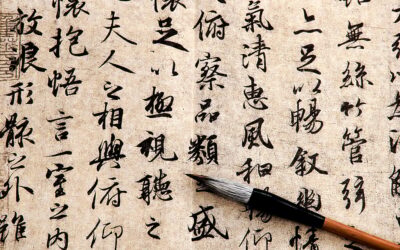 無絲竹管弦
亦足以暢敘幽
氣清惠風和暢仰
俯察品類之盛
懷足以極視聽之
夫人之相與俯仰
懷抱悟言一室之內
放浪形骸之外雖